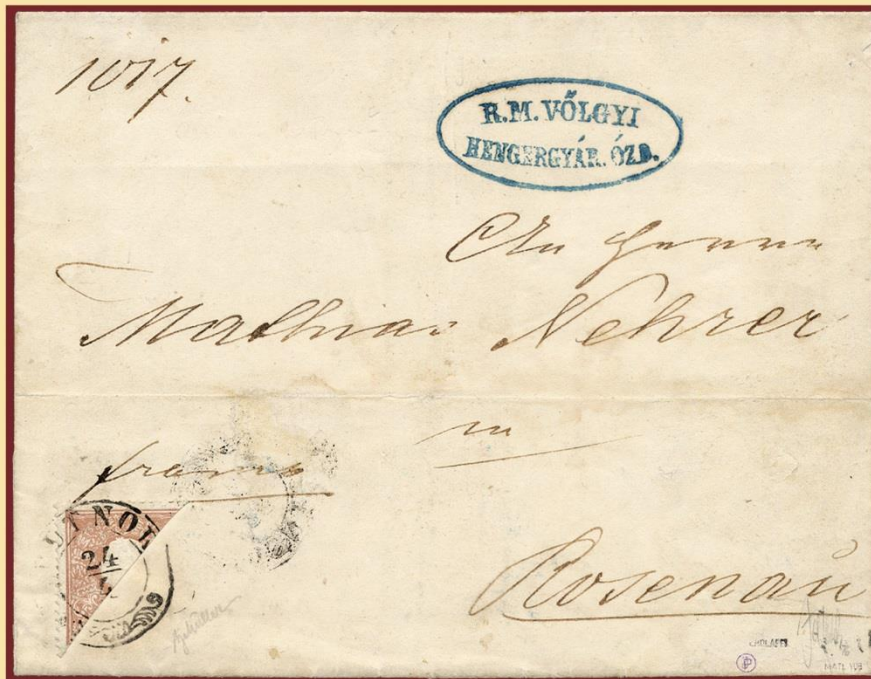 1017.
R. M. VŐLGYI
HENGERGYÁR. ÓZD.
An Herrn
Mathias Nehrer
in
franco
24
Rosenau